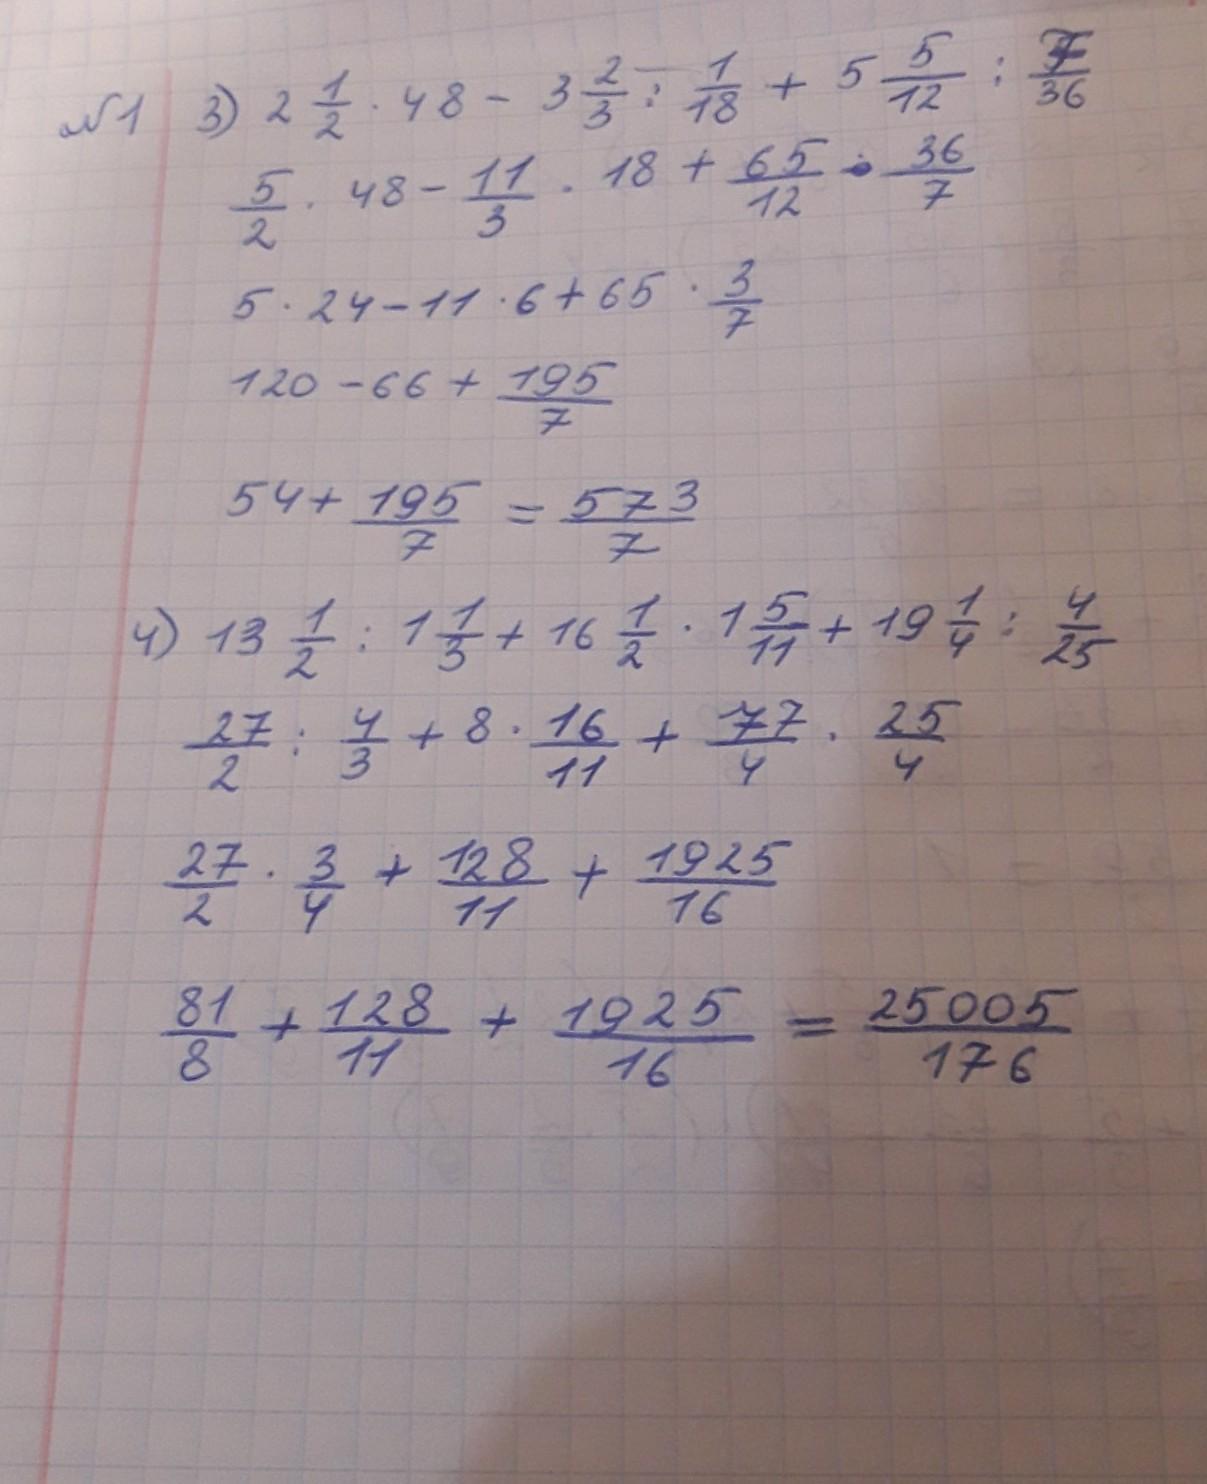 №1 3) 2 1/2 · 48 - 3 2/3 : 1/18 + 5 5/12 : 7/36
5/2 · 48 - 11/3 · 18 + 65/12 · 36/7
5 · 24 - 11 · 6 + 65 · 3/7
120 - 66 + 195/7
54 + 195/7 = 573/7
4) 13 1/2 : 1 1/3 + 16 1/2 · 1 5/11 + 19 1/4 : 4/25
27/2 : 4/3 + 8 · 16/11 + 77/4 · 25/4
27/2 · 3/4 + 128/11 + 1925/16
81/8 + 128/11 + 1925/16 = 25005/176